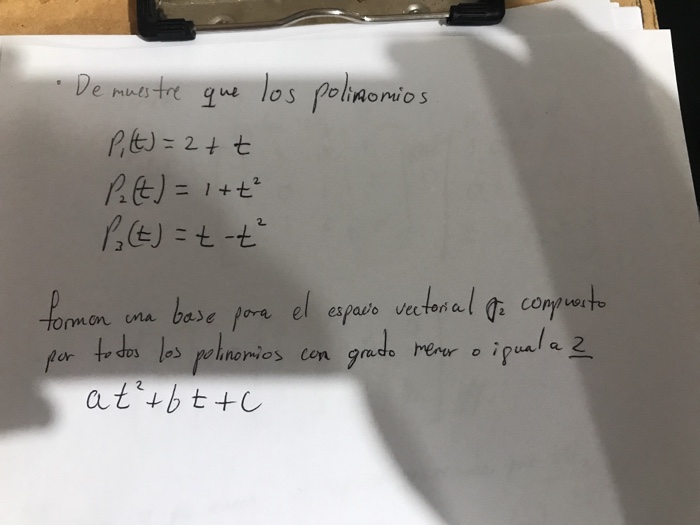 · Demuestre que los polinomios
P₁(t) = 2 + t
P₂(t) = 1 + t²
P₃(t) = t - t²
forman una base para el espacio vectorial P₂ compuesto
por todos los polinomios con grado menor o igual a 2
at² + bt + c